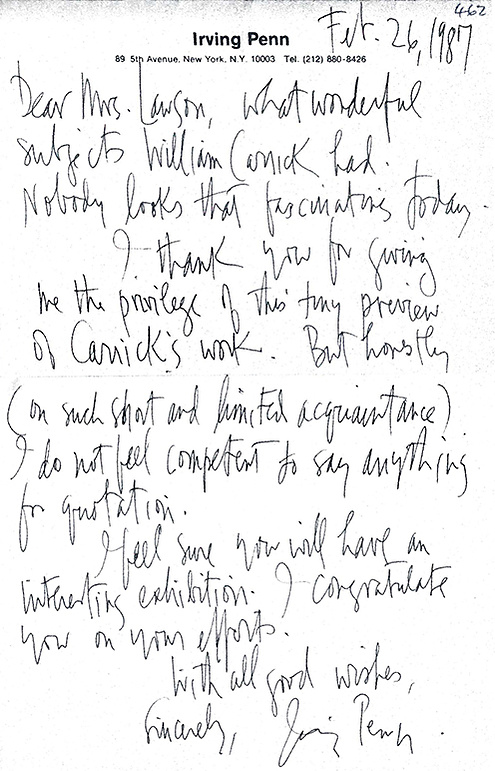 462
Feb. 26, 1987
Irving Penn
89 5th Avenue, New York, N.Y. 10003 Tel. (212) 880-8426
Dear Mrs. Lawson, what wonderful
subjects William Carrick had.
Nobody looks that fascinating today.
I thank you for giving
me the privilege of this tiny preview
of Carrick's work. But honestly
(on such short and limited acquaintance)
I do not feel competent to say anything
for quotation.
I feel sure you will have an
interesting exhibition. I congratulate
you on your efforts.
With all good wishes,
Sincerely, Irving Penn.